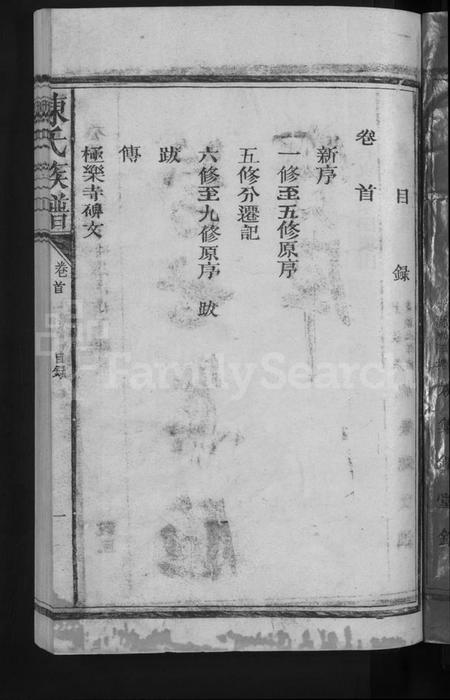 目錄
卷首
新序
一修至五修原序
五修分遷記
六修至九修原序 跋
跋
傳
極樂寺碑文
陳氏族譜
卷首
目錄
一
FamilySearch